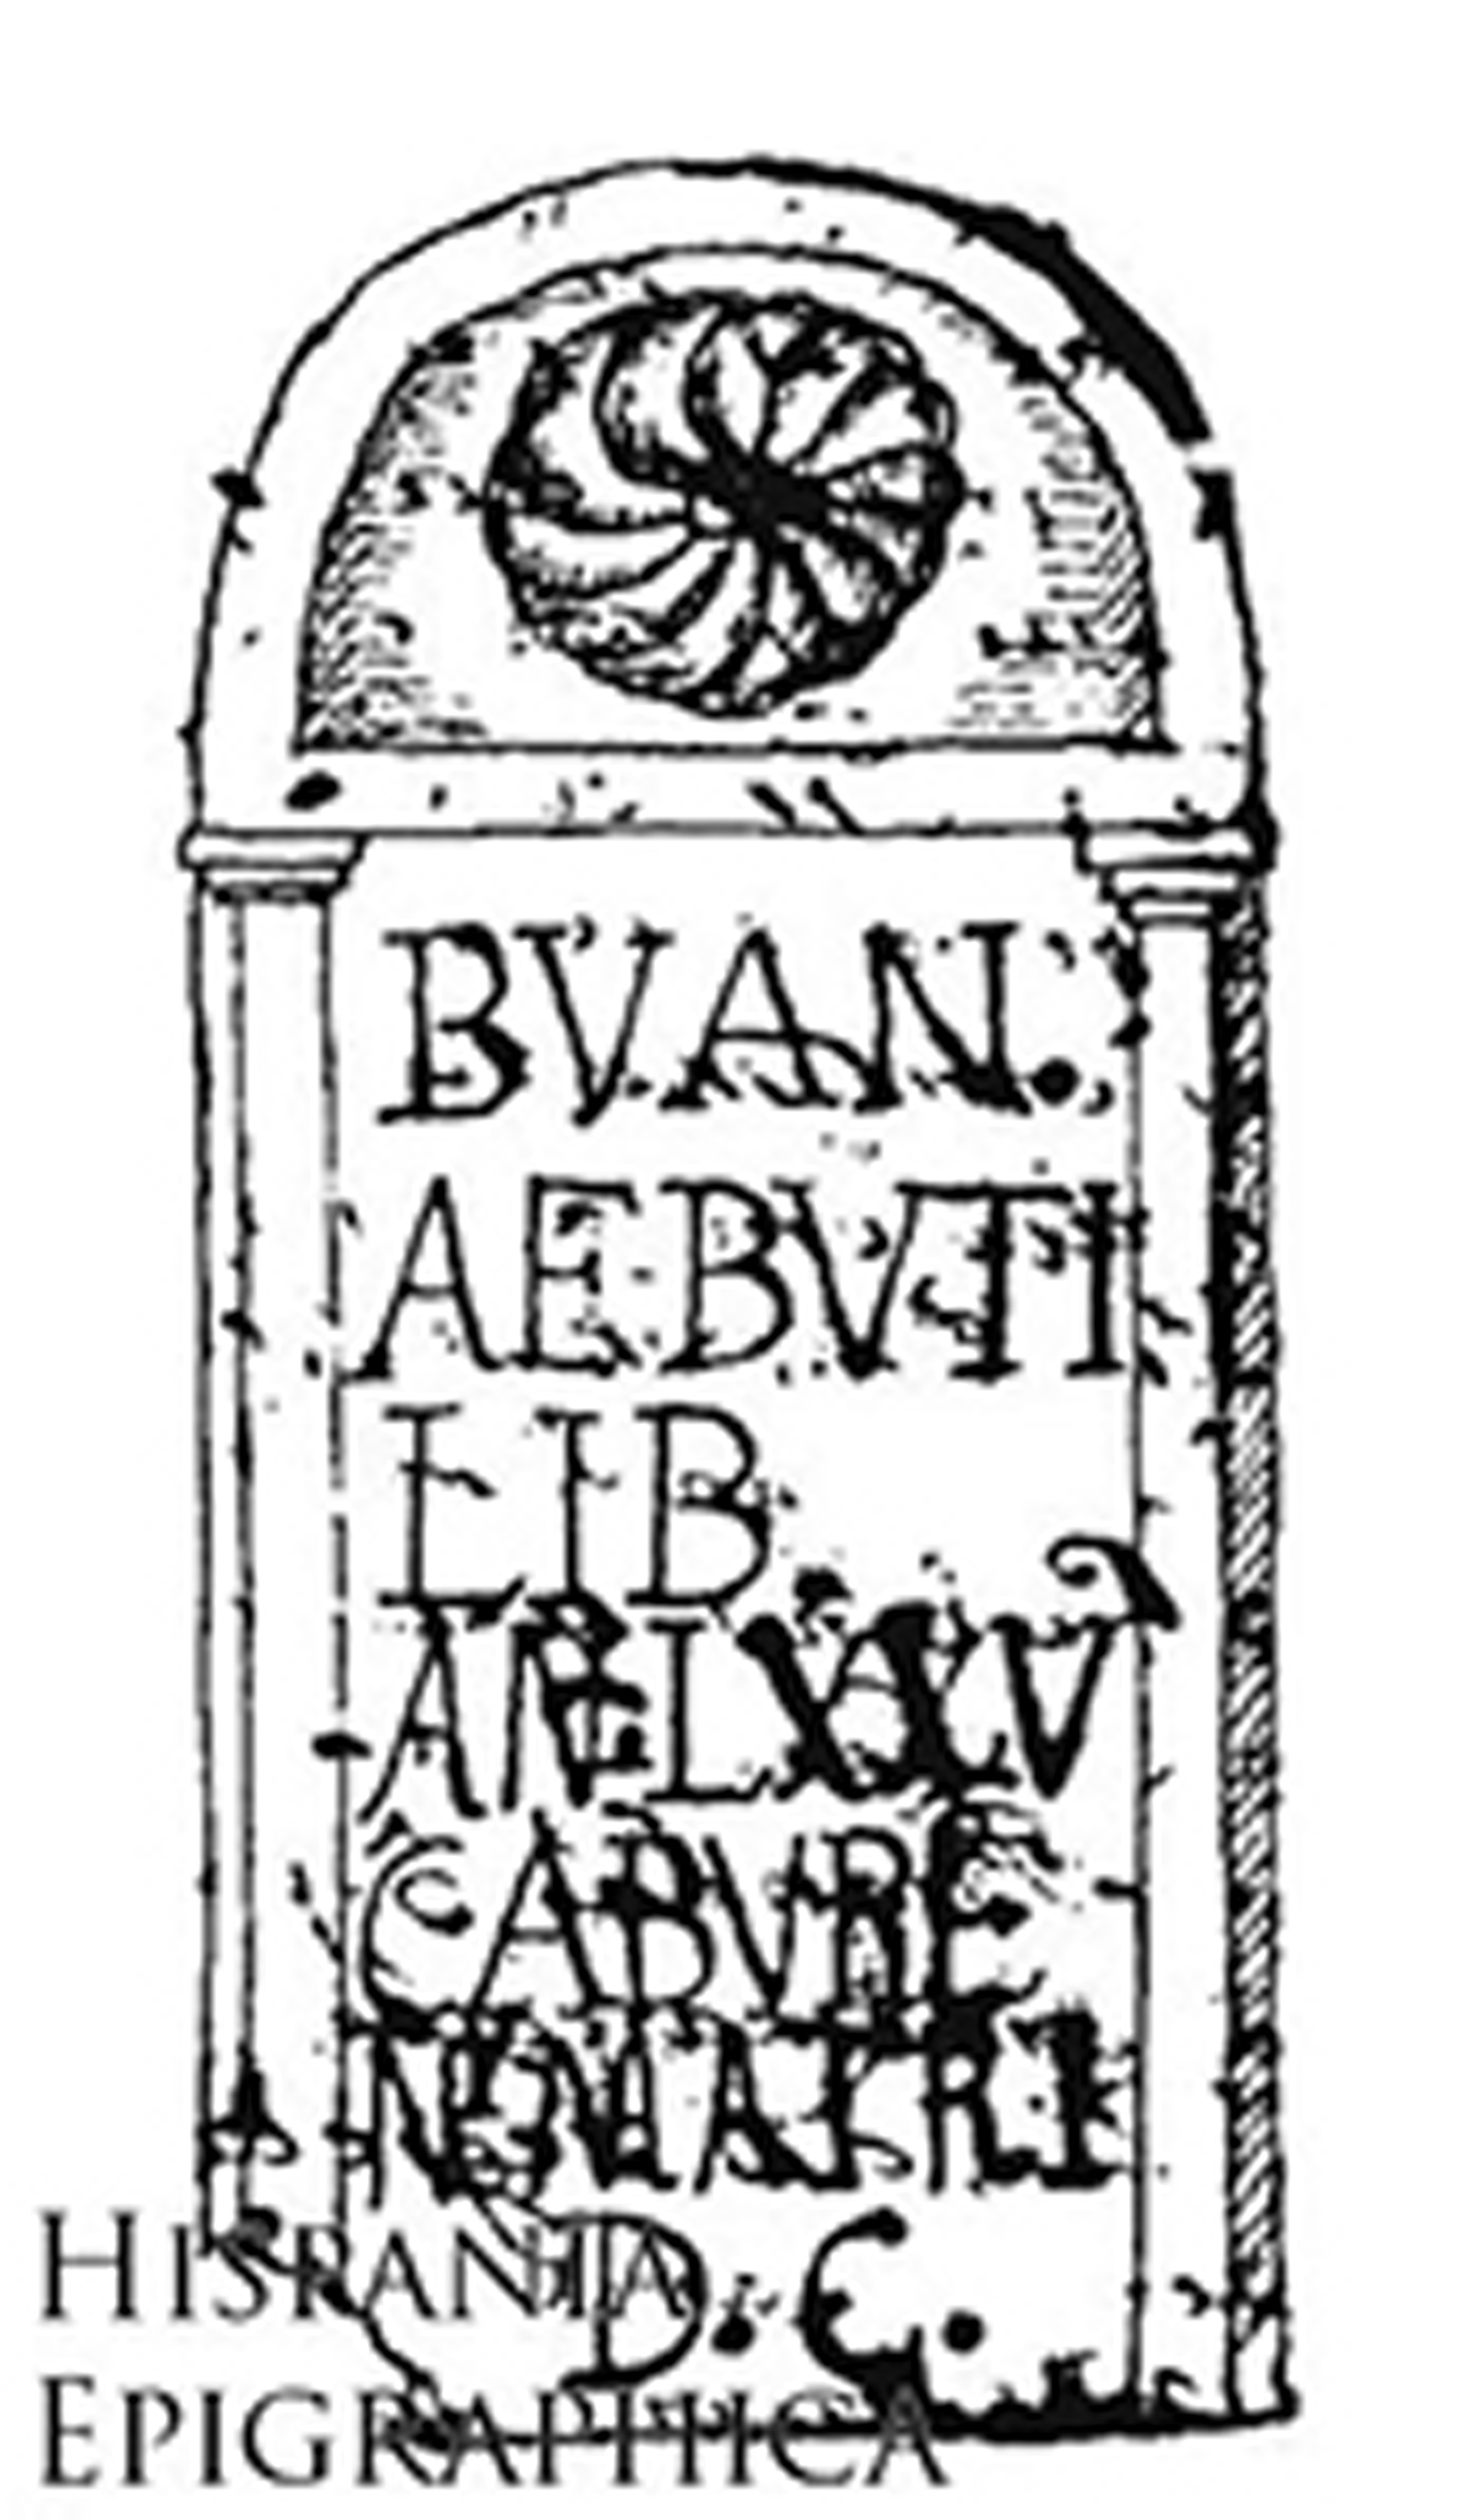 BVAN.
AEBVTI
LIB
AN LXXV
CABVRE
D. C.
HISPANIA
EPIGRAPHICA